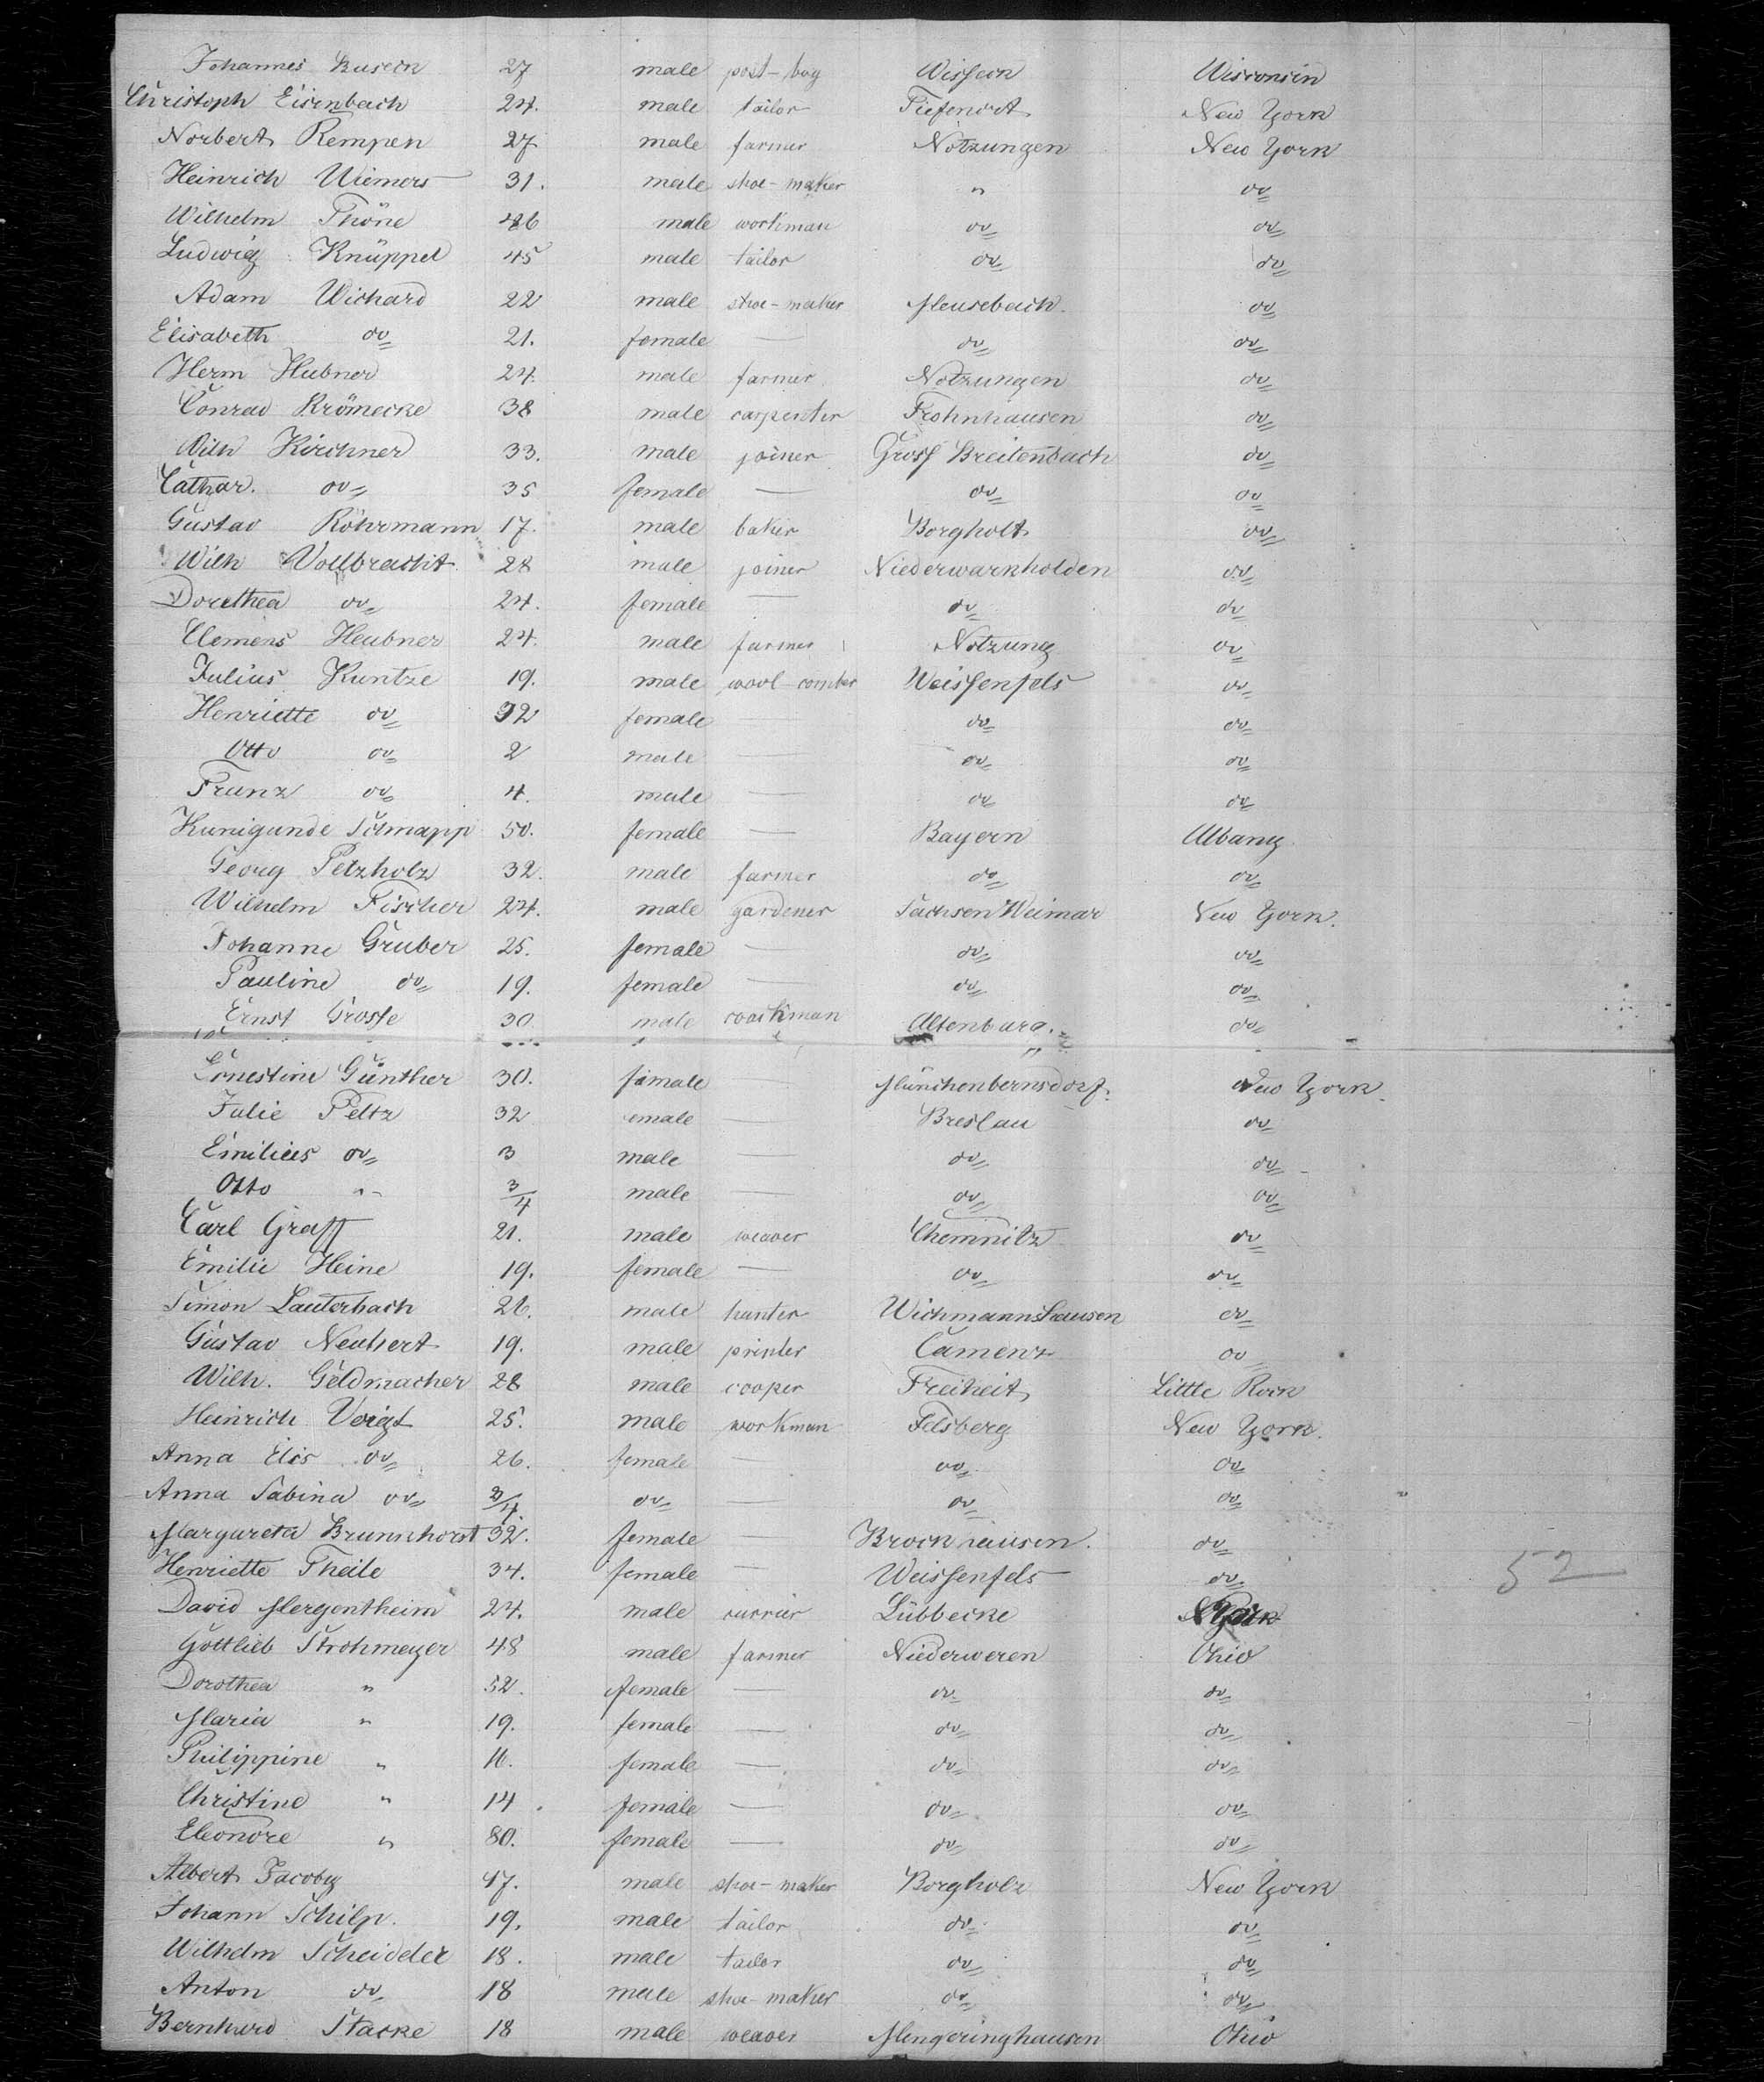 Johannes Buseck 27 male post-bog Wissern Wisconsin
Christoph Eisenbach 24. male tailor Tiefenort New York
Norbert Rempen 27 male farmer Notzungen New York
Heinrich Wiemers 31. male shoe-maker " do
Wilhelm Thöne 46 male workman do do
Ludwig Knüppel 45 male tailor do do
Adam Wichard 22 male shoe-maker Meusebach. do
Elisabeth do 21. female — do do
Herm Hubner 24. male farmer Notzungen do
Conrad Krömecke 38 male carpenter Frohnhausen do
Wilh Kirchner 33. male joiner Gross Breitenbach do
Cathar. do 35 female — do do
Gustav Röhrmann 17. male baker Borgholt do
Wilh Vollbracht 28 male joiner Niederwarkholden do
Dorethea do 24. female — do do
Clemens Heubner 24. male farmer Notzung do
Julius Kuntze 19. male wool-comber Weissenfels do
Henriette do 32 female do do
Otto do 2 male — do do
Franz do 4. male — do do
Kunigunde Schnapp 50. female — Bayern Albany
Georg Petzholz 32. male farmer do do
Wilhelm Fischer 24. male gardener Sachsen Weimar New York.
Johanne Gruber 25. female — do do
Pauline do 19. female — do do
Ernst Grosse 30 male workman Altenburg. do
Ernestine Günther 30. female Münchenbernsdorf. New York.
Julie Peltz 32 emale — Breslau do
Emilius do 3 male — do do
Otto " 3/4 male — do do
Carl Graff 21. male weaver Chemnitz do
Emilie Heine 19. female — do do
Simon Lauterbach 26. male hunter Wichmannshausen do
Gustav Neubert 19. male printer Camenz do
Wilh. Geldmacher 28 male cooper Freiheit Little Rock
Heinrich Voigt 25. male workman Felsberg New York.
Anna Elis do 26. female — do do
Anna Sabina do 3/4. do — do do
Margareta Brunnhorst 32. female — Brockhausen. do
Henriette Theile 34. female — Weissenfels do
52
David Mergentheim 24. male currier Lübbecke N York
Gottlieb Strohmeyer 48 male farmer Niederweren Ohio
Dorothea " 52. female — do do
Maria " 19. female — do do
Philippine " 16. female — do do
Christine " 14. female — do do
Eleonore " 80. female — do do
Albert Jacoby 47. male shoe-maker Borgholz New York
Johann Schilp. 19. male tailor do do
Wilhelm Scheideler 18. male tailor do do
Anton do 18 male shoe-maker do do
Bernhard Starke 18 male weaver Mengeringhausen Ohio